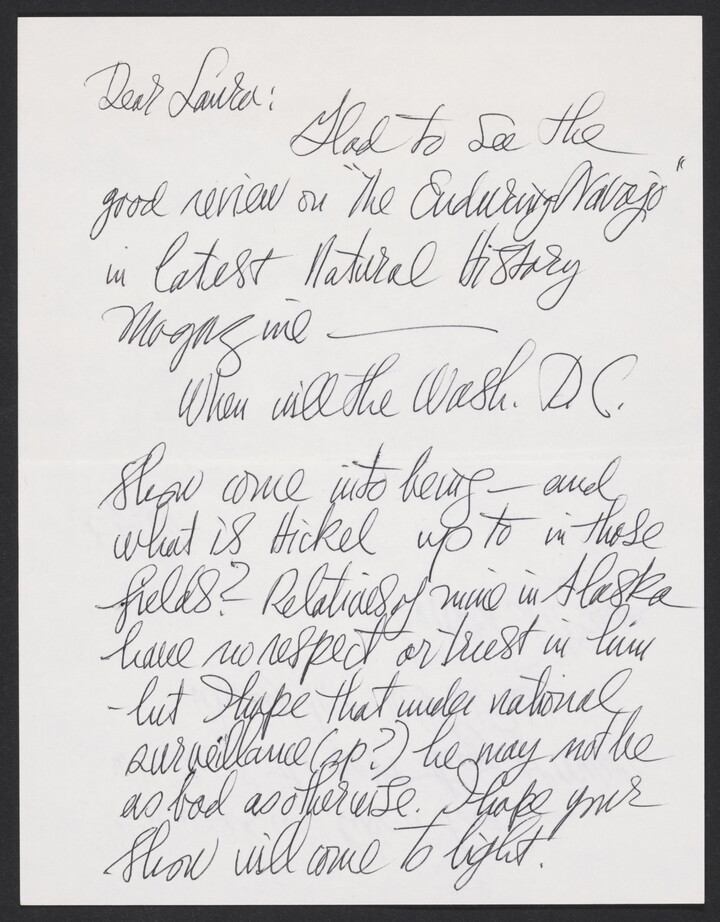 Dear Laura:
Glad to see the
good review on "The Enduring Navajo"
in latest Natural History
Magazine —
When will the Wash. D.C.
Show come into being — and
what is Hickel up to in those
fields? Relatives of mine in Alaska
have no respect or trust in him
- but I hope that under national
surveillance (sp?) he may not be
as bad as otherwise. I hope your
Show will come to light.